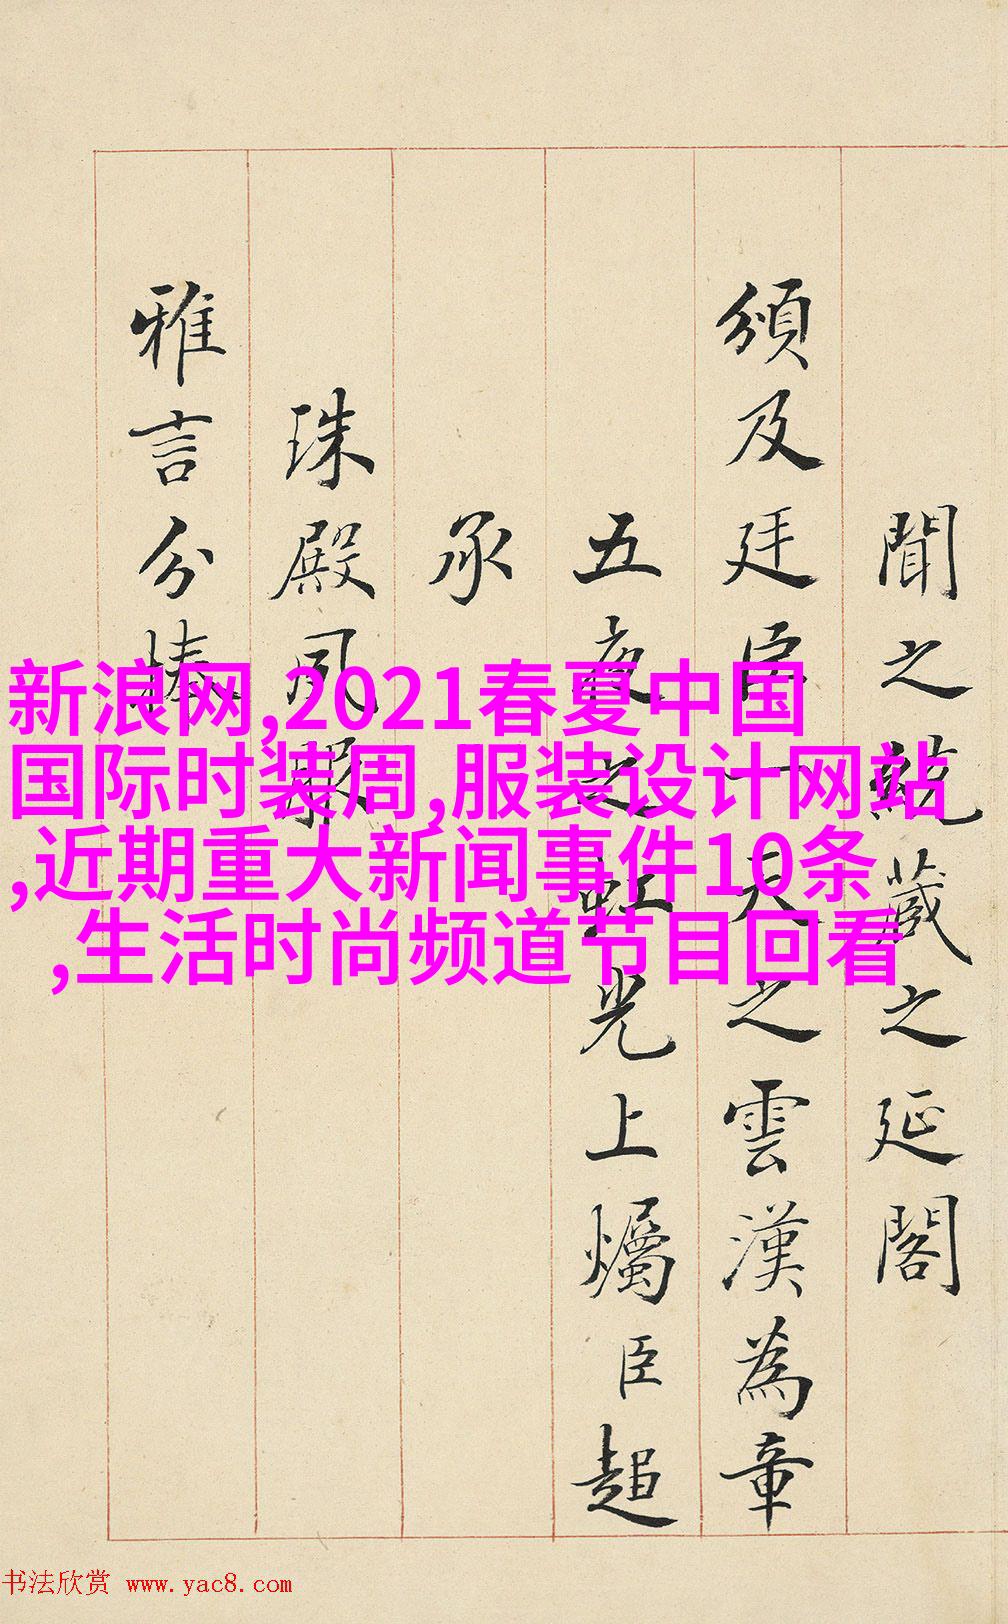 聞之藏之延閣
頒及廷臣一天之雲漢為章
五夜之虹光上爥臣超
承
珠殿夙
雅言分
新浪网,2021春夏中国
国际时装周,服装设计网站
,近期重大新闻事件10条
,生活时尚频道节目回看
书法欣赏 www.yac8.com